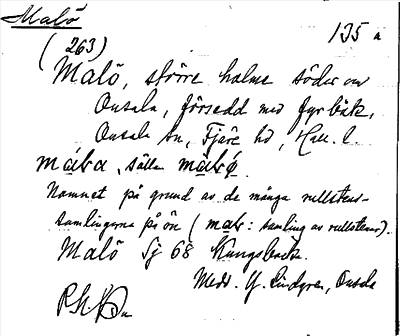 Malö
135 a
(263)
Malö, större holme söder om
Onsala, försedd med fyrbåk,
Onsala sn, Fjäre hd, Hall. l.
sälla
Namnet på grund av de många rullstens-
samlingarna på ön ( : samling av rullstenar).
Malö Sj 68 Kungsbacka.
Medd. Lindgren, Onsala